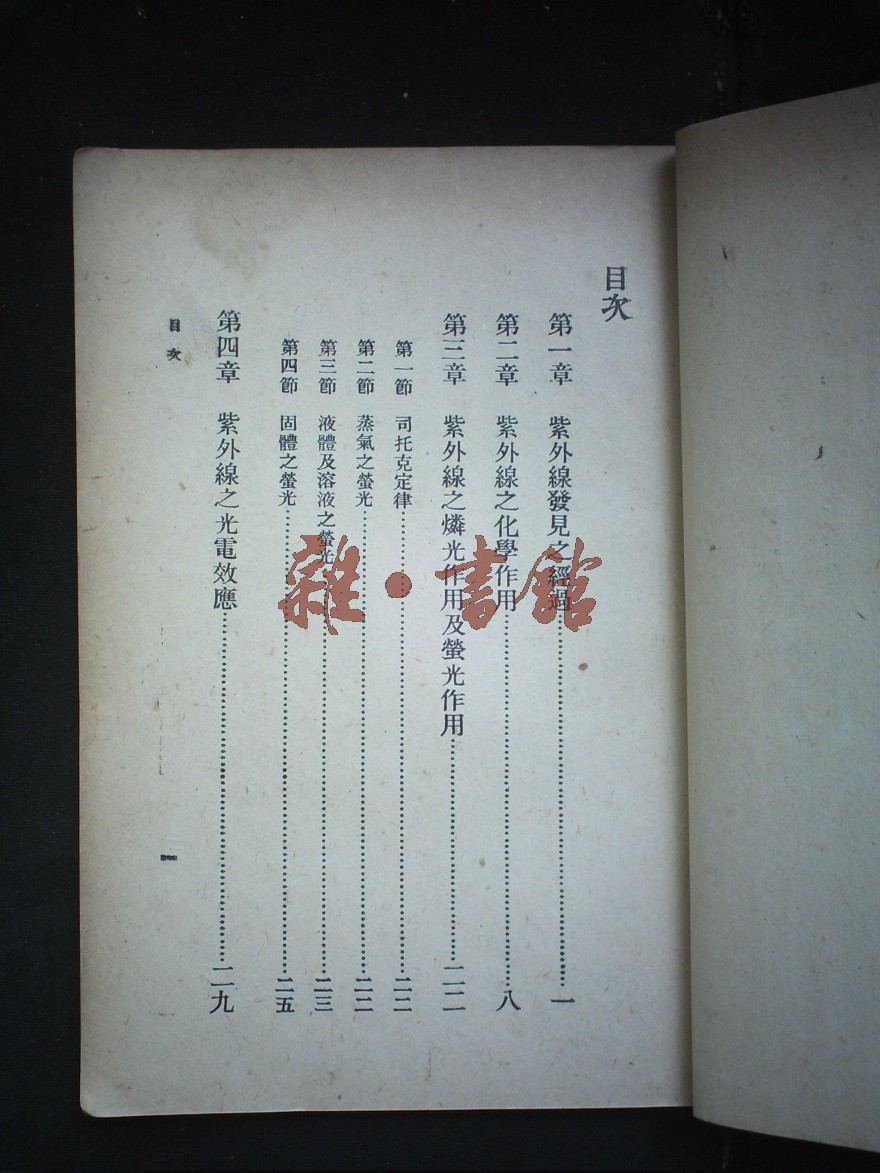 目次
第一章　紫外線發見之經過……一
第二章　紫外線之化學作用……八
第三章　紫外線之燐光作用及螢光作用……二二
第一節　司托克定律……二二
第二節　蒸氣之螢光……二二
第三節　液體及溶液之螢光……二三
第四節　固體之螢光……二五
第四章　紫外線之光電效應……二九
目次
一
雜·書館